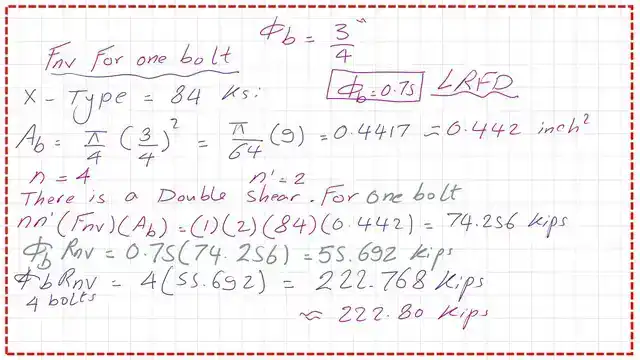 ϕb = 3/4"
Fnv For one bolt
ϕb = 0.75 LRFD
X - Type = 84 ksi
Ab = π/4 (3/4)² = π/64 (9) = 0.4417 ≈ 0.442 inch²
n = 4 n' = 2
There is a Double shear. For one bolt
nn'(Fnv)(Ab) = (1)(2)(84)(0.442) = 74.256 kips
ϕb Rnv = 0.75(74.256) = 55.692 kips
ϕb Rnv = 4(55.692) = 222.768 kips
4 bolts
≈ 222.80 kips